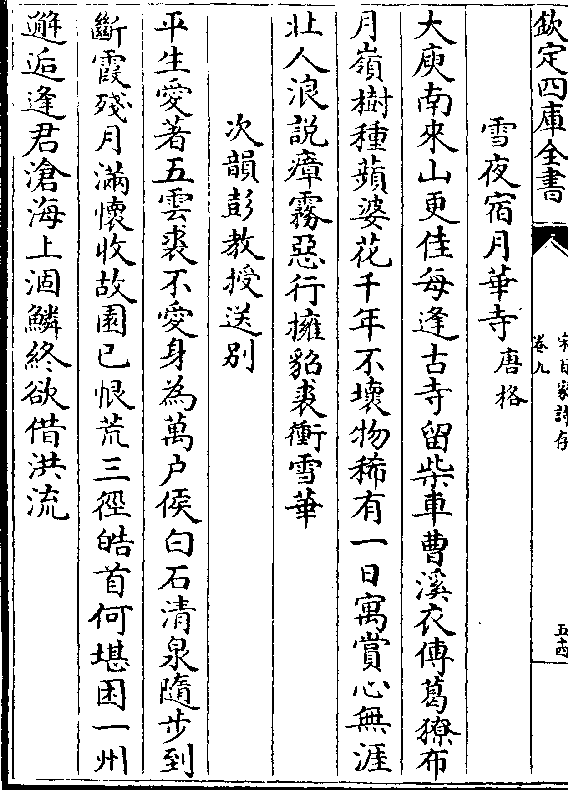 欽定四庫全書
宋百家詩存
卷九
五十四
雪夜宿月華寺 唐格
大庾南來山更佳每逢古寺留柴車曹溪衣傳葛獠布
月嶺樹種蘋婆花千年不壞物稀有一日寓賞心無涯
北人浪說瘴霧惡行擁貂裘衝雪華
次韻彭教授送别
平生愛著五雲裘不愛身為萬户侯白石清泉隨步到
斷霞殘月滿懷收故園已恨荒三徑皓首何堪困一州
邂逅逢君滄海上涸鱗終欲借洪流